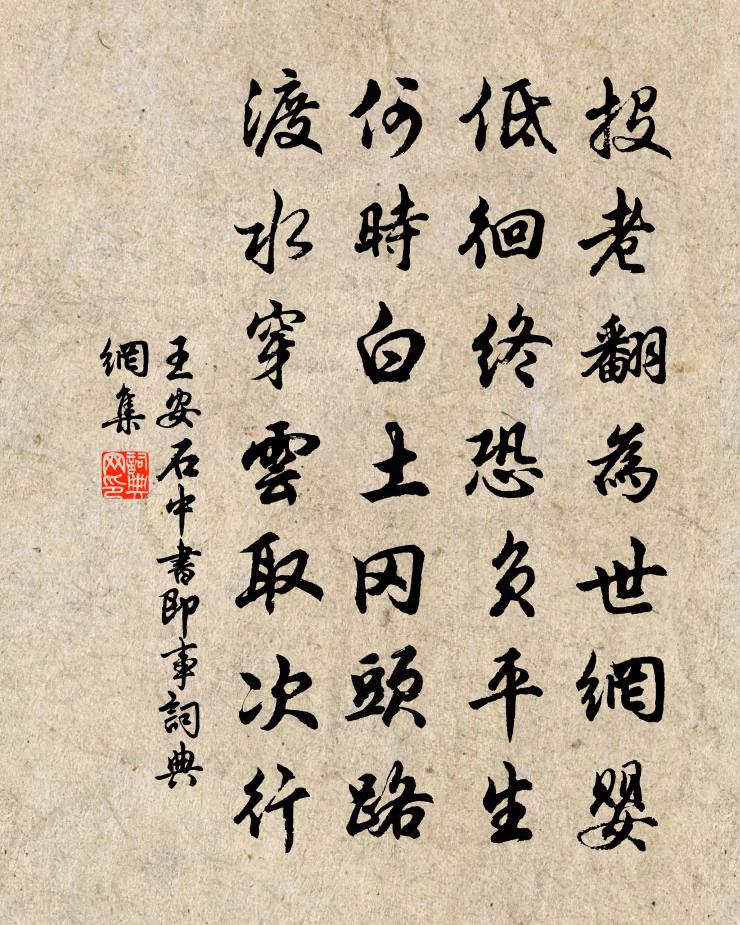 投老翻為世網嬰
低徊終恐負平生
何時白土岡頭路
渡水穿雲取次行
王安石中書即事詞典
網集
詞典網印